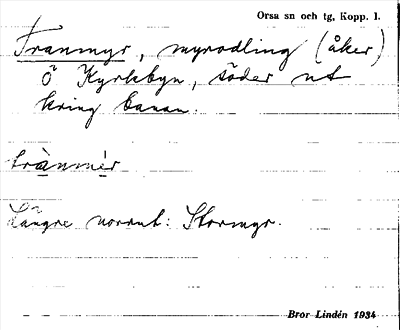 Orsa sn och tg, Kopp. l.
Tranmyr, myrodling (åker)
Ö Kyrkbyn, söder ut
kring banan.
trànmèr
Längre norrut: Stormyr.
Bror Lindén 1934